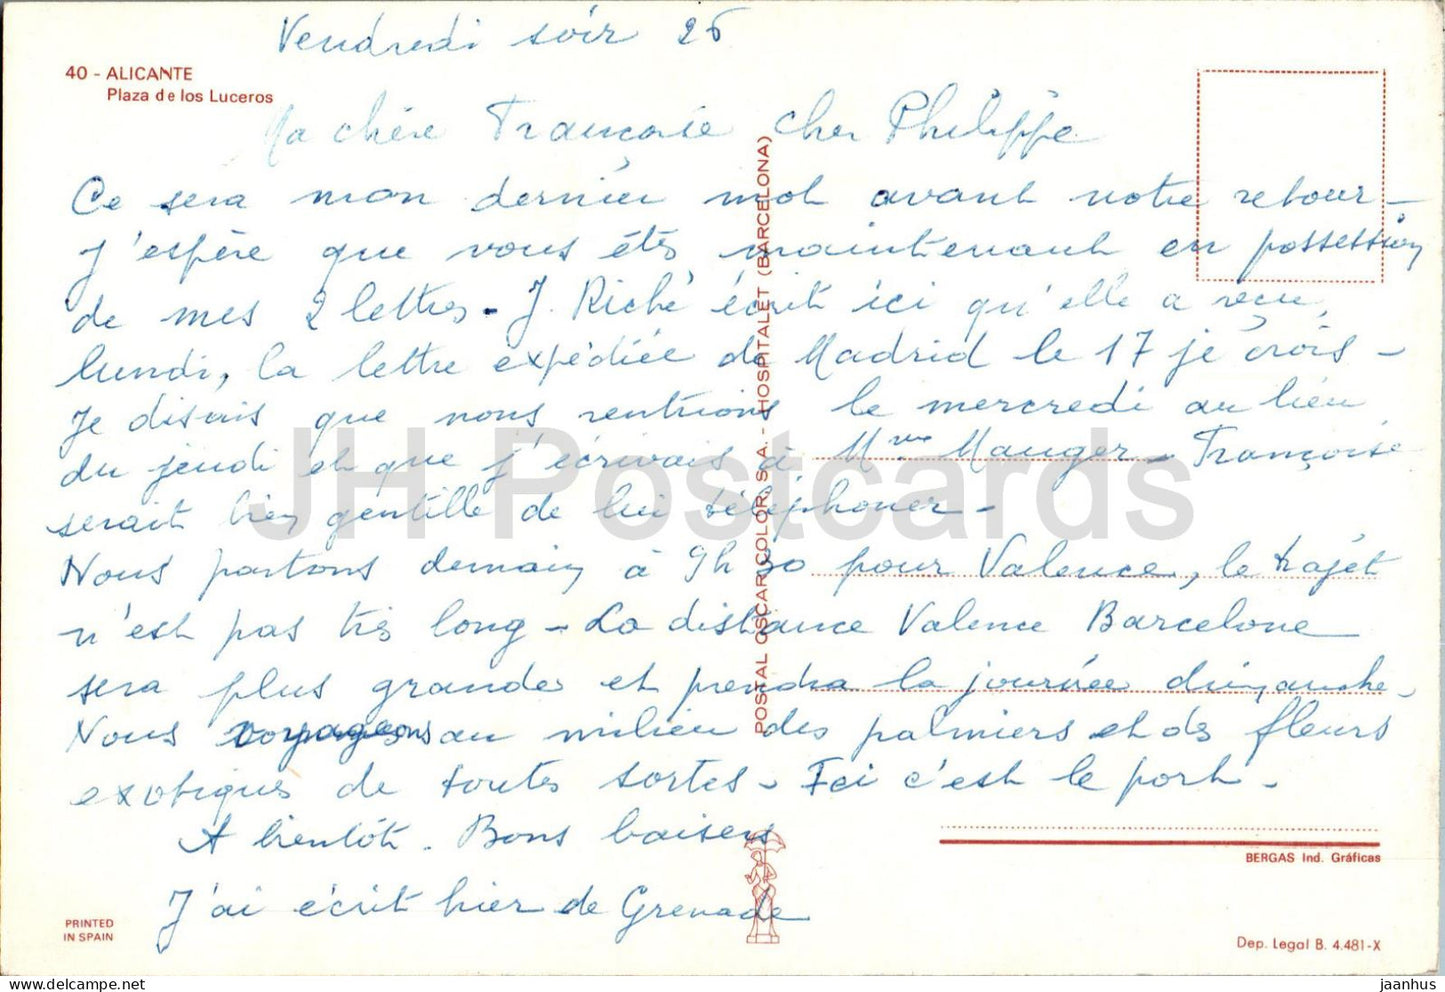 Vendredi soir 26
40 - ALICANTE
Plaza de los Luceros
Ma chère Françoise cher Philippe
Ce sera mon dernier mot avant notre retour -
j'espère que vous êtes maintenant en possession
de mes 2 lettres - J. Riché écrit ici qu'elle a reçu,
lundi, la lettre expédiée de Madrid le 17 je crois -
Je disais que nous rentrions le mercredi au lieu
du jeudi et que j'écrivais à Mme Mauger - Françoise
serait bien gentille de lui téléphoner -
Nous partons demain à 9h30 pour Valence, le trajet
n'est pas très long - La distance Valence Barcelone
sera plus grande et prendra la journée dimanche -
Nous voyageons au milieu des palmiers et des fleurs
exotiques de toutes sortes - Ici c'est le port -
A bientôt. Bons baisers
J'ai écrit hier de Grenade
POSTAL OSCAR COLOR, S.A. - HOSPITALET (BARCELONA)
BERGAS Ind. Gráficas
PRINTED
IN SPAIN
Dep. Legal B. 4.481-X
JH Postcards
jaanhus © delcampe.net